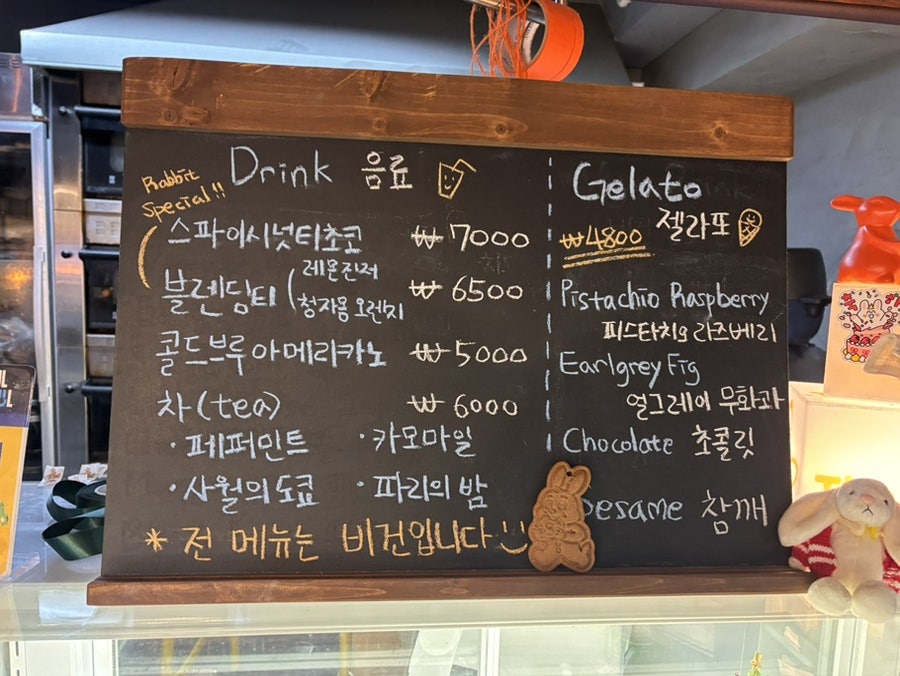 Drink 음료
Rabbit
Special!!
스파이시넛티초코 ₩7000
블렌딩티 (레몬진저
청자몽오렌지 ₩6500
콜드브루 아메리카노 ₩5000
차(tea) ₩6000
· 페퍼민트 · 카모마일
· 사월의도쿄 · 파리의밤
* 전 메뉴는 비건입니다
Gelato
젤라또
₩4800
Pistachio Raspberry
피스타치오 라즈베리
Earlgrey Fig
얼그레이 무화과
Chocolate 초콜릿
Sesame 참깨